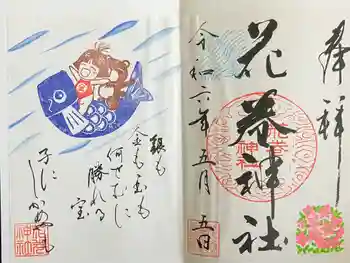 奉拝
花巻神社
令和六年五月五日
花巻神社
銀も
金も玉も
何せむに
勝れる
宝
子に
しかめやも